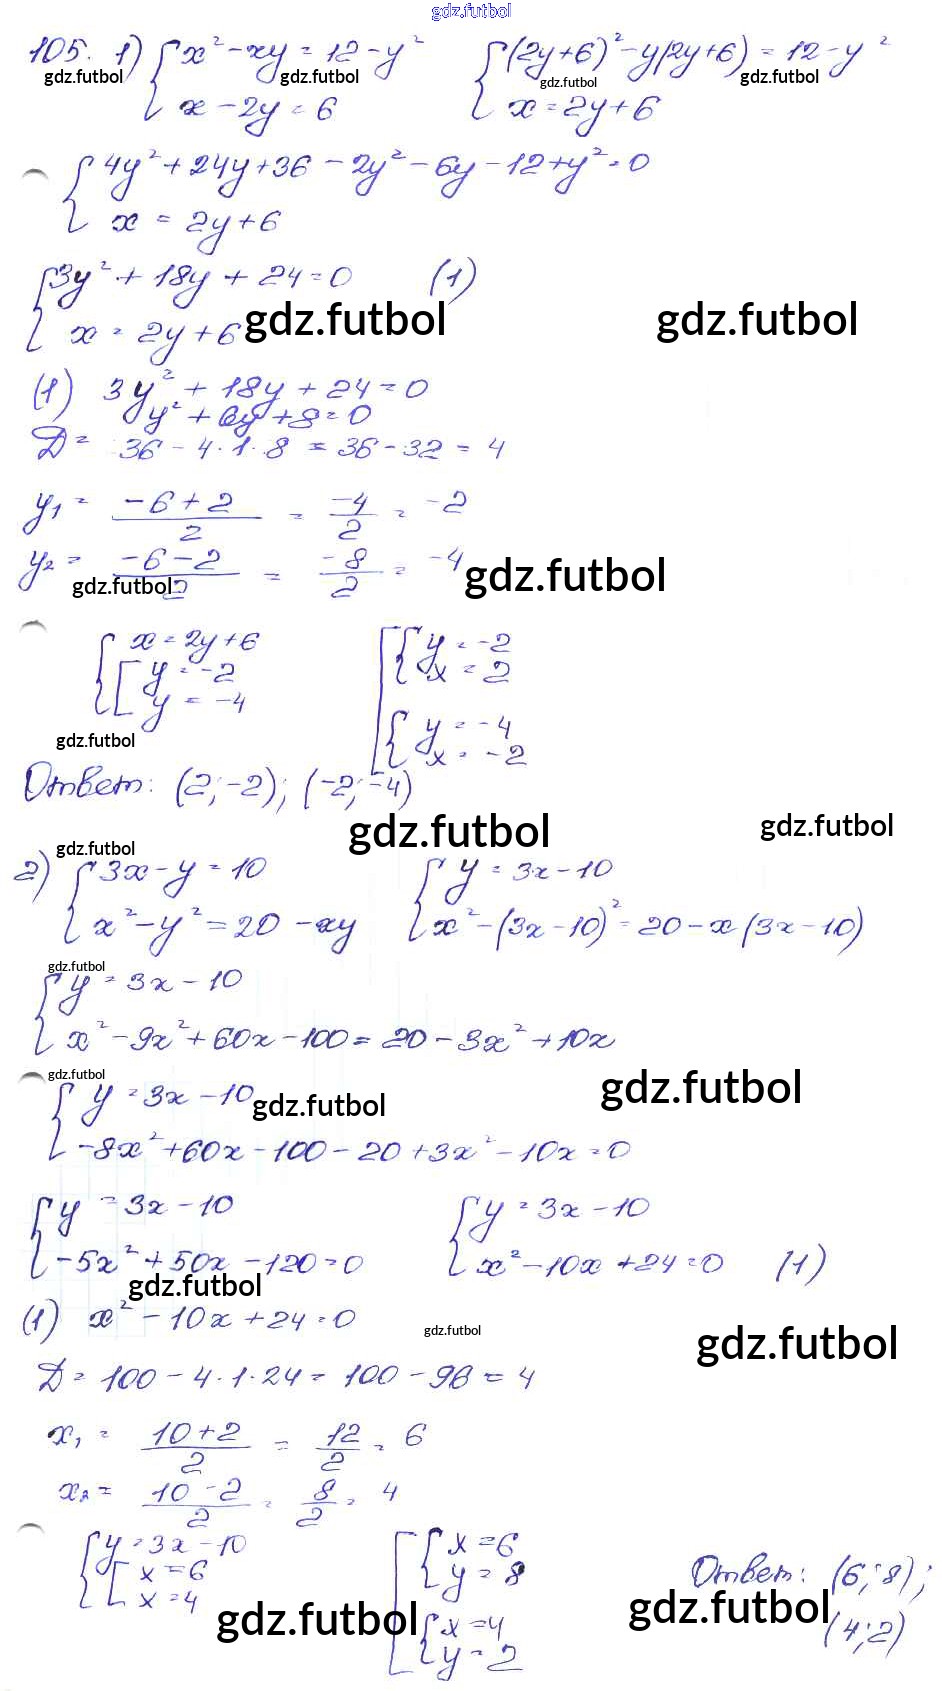 gdz.futbol
105. 1) { x² - xy = 12 - y²   { (2y+6)² - y(2y+6) = 12 - y²
gdz.futbol gdz.futbol gdz.futbol gdz.futbol
x - 2y = 6   x = 2y + 6
{ 4y² + 24y + 36 - 2y² - 6y - 12 + y² = 0
x = 2y + 6
{ 3y² + 18y + 24 = 0   (1)
x = 2y + 6 gdz.futbol gdz.futbol
(1) 3y² + 18y + 24 = 0
y² + 6y + 8 = 0
D = 36 - 4·1·8 = 36 - 32 = 4
y₁ = (-6+2)/2 = -4/2 = -2
y₂ = (-6-2)/2 = -8/2 = -4 gdz.futbol
gdz.futbol
{ x = 2y + 6   [ { y = -2
[ y = -2   x = 2
y = -4   { y = -4
gdz.futbol x = -2
Ответ: (2; -2); (-2; -4)
gdz.futbol gdz.futbol
gdz.futbol
2) { 3x - y = 10   { y = 3x - 10
x² - y² = 20 - xy   x² - (3x - 10)² = 20 - x(3x - 10)
gdz.futbol
{ y = 3x - 10
x² - 9x² + 60x - 100 = 20 - 3x² + 10x
gdz.futbol gdz.futbol
{ y = 3x - 10 gdz.futbol
-8x² + 60x - 100 - 20 + 3x² - 10x = 0
{ y = 3x - 10   { y = 3x - 10
-5x² + 50x - 120 = 0   x² - 10x + 24 = 0   (1)
gdz.futbol
(1) x² - 10x + 24 = 0
gdz.futbol gdz.futbol
D = 100 - 4·1·24 = 100 - 96 = 4
x₁ = (10+2)/2 = 12/2 = 6
x₂ = (10-2)/2 = 8/2 = 4
{ y = 3x - 10   [ { x = 6
[ x = 6   y = 8   Ответ: (6; 8);
x = 4   { x = 4   (4; 2)
gdz.futbol gdz.futbol
y = 2